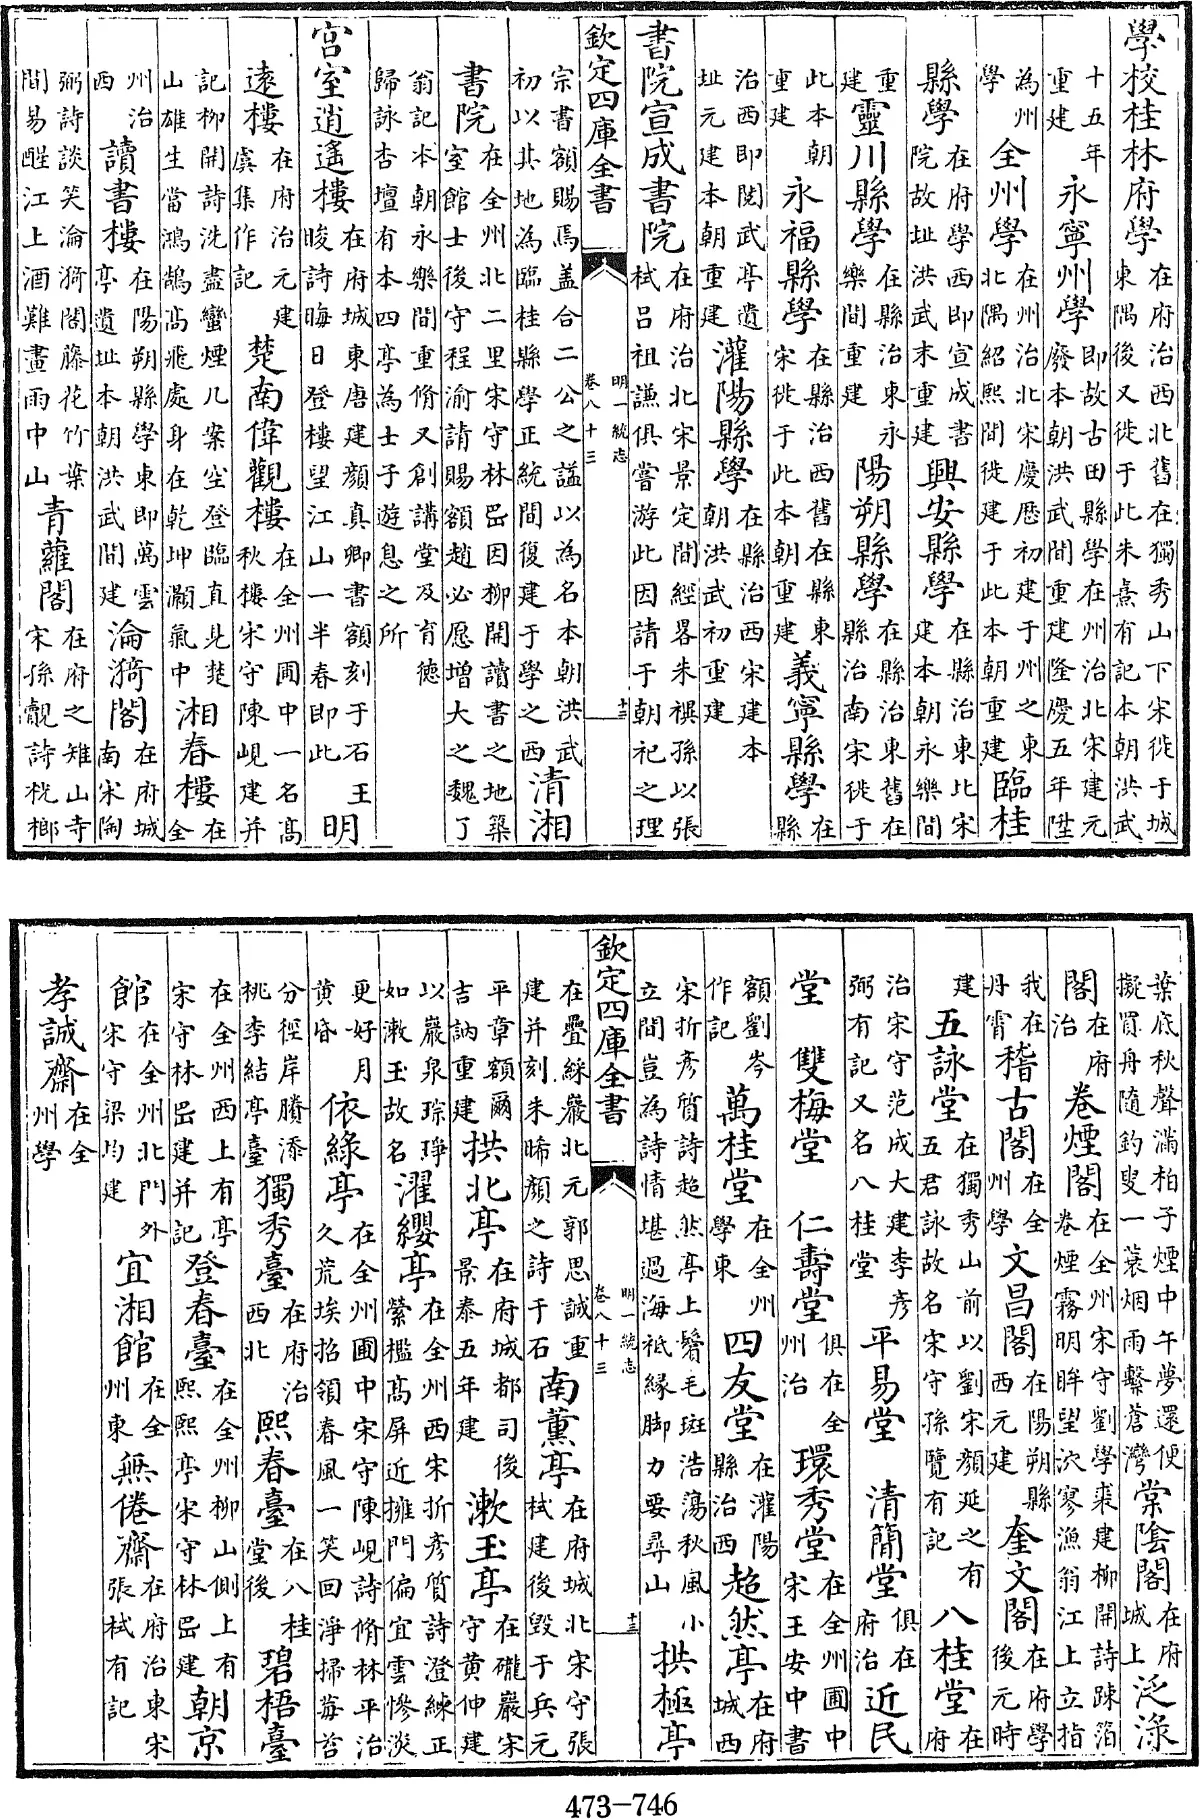 學校桂林府學在府治西北舊在獨秀山下宋徙于城東隅後又徙于此朱熹有記本朝洪武
十五年重建永寧州學即故古田縣學在州治北宋建元廢本朝洪武間重建隆慶五年陞
為州學全州學在州治北宋慶歷初建于州之東北隅紹熙間徙建于此本朝重建臨桂
縣學在府學西即宣成書院故址洪武末重建興安縣學在縣治東北宋建本朝永樂間
重建靈川縣學在縣治東永樂間重建陽朔縣學在縣治東舊在縣治南宋徙于
此本朝重建永福縣學在縣治西舊在縣東宋徙于此本朝重建義寧縣學在縣
治西即閱武亭遺址元建本朝重建灌陽縣學在縣治西宋建本朝洪武初重建
書院宣成書院在府治北宋景定間經畧朱禩孫以張栻呂祖謙俱嘗游此因請于朝祀之理
欽定四庫全書
明一統志
卷八十三
宗書額賜焉蓋合二公之諡以為名本朝洪武初以其地為臨桂縣學正統間復建于學之西清湘
書院在全州北二里宋守林岊因柳開讀書之地築室館士後守程渝請賜額趙必愿增大之魏了
翁記本朝永樂間重脩又創講堂及育德歸詠杏壇有本四亭為士子遊息之所
宮室逍遙樓在府城東唐建顔真卿書額刻于石王晙詩晦日登樓望江山一半春即此明
遠樓在府治元建虞集作記楚南偉觀樓在全州圃中一名髙秋樓宋守陳峴建并
記柳開詩洗盡蠻煙几案空登臨直見楚山雄生當鴻鵠髙飛處身在乾坤灝氣中湘春樓在全
州治西讀書樓在陽朔縣學東即萬雲亭遺址本朝洪武間建淪漪閣在府城南宋陶
弼詩談笑淪漪閣藤花竹葉間易醒江上酒難畫雨中山青蘿閣在府之雉山寺宋孫覿詩桄榔
葉底秋聲滿柏子煙中午夢還便擬買舟隨釣叟一蓑烟雨繫蒼灣棠陰閣在府城上泛淥
閣在府治卷煙閣在全州宋守劉學裘建柳開詩踈箔卷煙霧明眸望泬寥漁翁江上立指
我在丹霄稽古閣在全州學文昌閣在陽朔縣西元建奎文閣在府學後元時
建五詠堂在獨秀山前以劉宋顔延之有五君詠故名宋守孫覽有記八桂堂在府
治宋守范成大建李彦弼有記又名八桂堂平易堂 清簡堂俱在府治近民
堂 雙梅堂 仁壽堂俱在全州治環秀堂在全州圃中宋王安中書
額劉岑作記萬桂堂在全州學東四友堂在灌陽縣治西超然亭在府城西
宋折彦質詩超然亭上鬢毛斑浩蕩秋風小立間豈為詩情堪過海祗緣脚力要尋山拱極亭
欽定四庫全書
明一統志
卷八十三
在疊綵巖北元郭思誠重建并刻朱晞顔之詩于石南薰亭在府城北宋守張栻建後毁于兵元
平章額爾吉訥重建拱北亭在府城都司後景泰五年建漱玉亭在㠥巖宋守黄仲建
以巖泉琮琤如漱玉故名濯纓亭在全州西宋折彦質詩澄練正縈檻髙屏近擁門偏宜雲慘淡
更好月黄昏依緑亭在全州圃中宋守陳峴詩脩林平治久荒埃招領春風一笑回淨掃莓苔
分徑岸賸添桃李結亭臺獨秀臺在府治西北熙春臺在八桂堂後碧梧臺
在全州西上有亭宋守林岊建并記登春臺在全州柳山側上有熙熙亭宋守林岊建朝京
館在全州北門外宋守梁均建宜湘館在全州東無倦齋在府治東宋張栻有記
孝誠齋在全州學
473-746